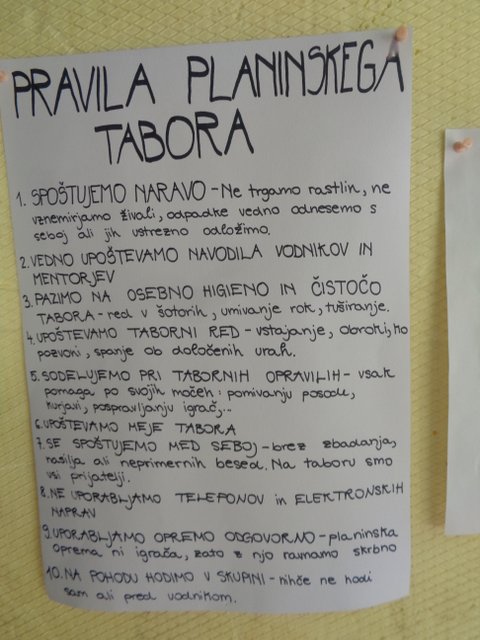 PRAVILA PLANINSKEGA
TABORA
1. SPOŠTUJEMO NARAVO - Ne trgamo rastlin, ne
vznemirjamo živali, odpadke vedno odnesemo s
seboj ali jih ustrezno odložimo.
2. VEDNO UPOŠTEVAMO NAVODILA VODNIKOV IN
MENTORJEV
3. PAZIMO NA OSEBNO HIGIENO IN ČISTOČO
TABORA - red v šotorih, umivanje rok, tuširanje.
4. UPOŠTEVAMO TABORNI RED - vstajanje, obroki, ko
pozvoni, spanje ob določenih urah.
5. SODELUJEMO PRI TABORNIH OPRAVILIH - vsak
pomaga po svojih močeh: pomivanju posode,
kurjavi, pospravljanju igrač,...
6. UPOŠTEVAMO MEJE TABORA
7. SE SPOŠTUJEMO MED SEBOJ - brez zbadanja,
nasilja ali neprimernih besed. Na taboru smo
vsi prijatelji.
8. NE UPORABLJAMO TELEFONOV in ELEKTRONSKIH
NAPRAV
9. UPORABLJAMO OPREMO ODGOVORNO - planinska
oprema ni igrača, zato z njo ravnamo skrbno
10. NA POHODU HODIMO V SKUPINI - nihče ne hodi
sam ali pred vodnikom.